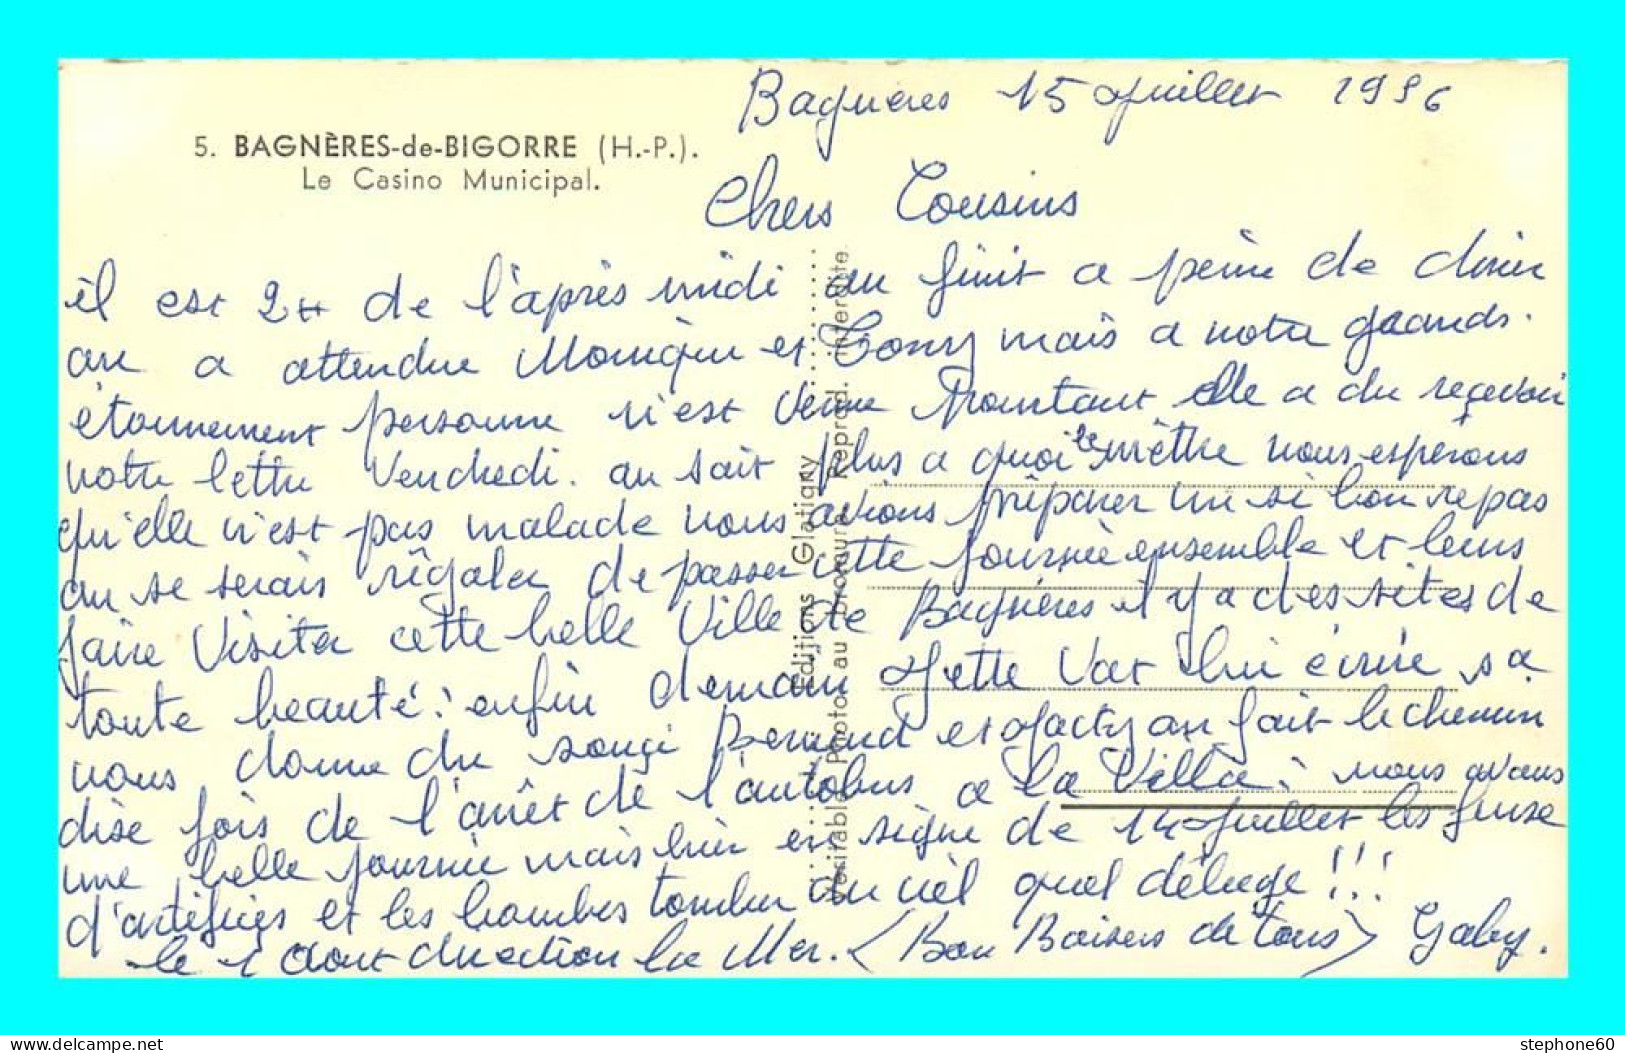 Bagnères 15 Juillet 1956
5. BAGNÈRES-de-BIGORRE (H.-P.).
Le Casino Municipal.
Chers Cousins
il est 2H de l'après midi on finit a peine de diner
on a attendue Monique et Tony mais a notre grands.
étonnement personne n'est venue Pourtant elle a du recevoir
notre lettre Vendredi. on sait plus a quoi le mêttre nous espérons
qu'elle n'est pas malade nous avions préparer un si bon repas
on se serais régaler de passer cette journée ensemble et leurs
faire Visiter cette belle Ville de Bagnères il y a des sites de
toute beauté: enfin demain Jette Var lui écrire sa
nous donne du souçi Bernard et Jacky on fait le chemin
dise fois de l'arrêt de l'autobus a la Villa: nous avons
une belle journée mais hier en signe de 14 Juillet les feuse
d'artifices et les bombes tomber du ciel quel déluge!!!
le 1 aout direction la Mer. (Bon Baisers de tous) Gaby.
Editions Glatigny
Véritable Photo au bromure. Reprod. interdite.
stephone60